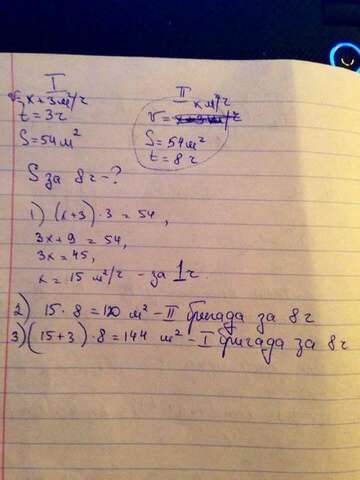 I
v = x + 3 м²/ч
t = 3 ч
S = 54 м²
II
x м²/ч
v =
S = 54 м²
t = 8 ч
S за 8 ч - ?
1) (x+3) · 3 = 54,
3x + 9 = 54,
3x = 45,
x = 15 м²/ч - за 1 ч.
2) 15 · 8 = 120 м² - II бригада за 8 ч
3) (15+3) · 8 = 144 м² - I бригада за 8 ч